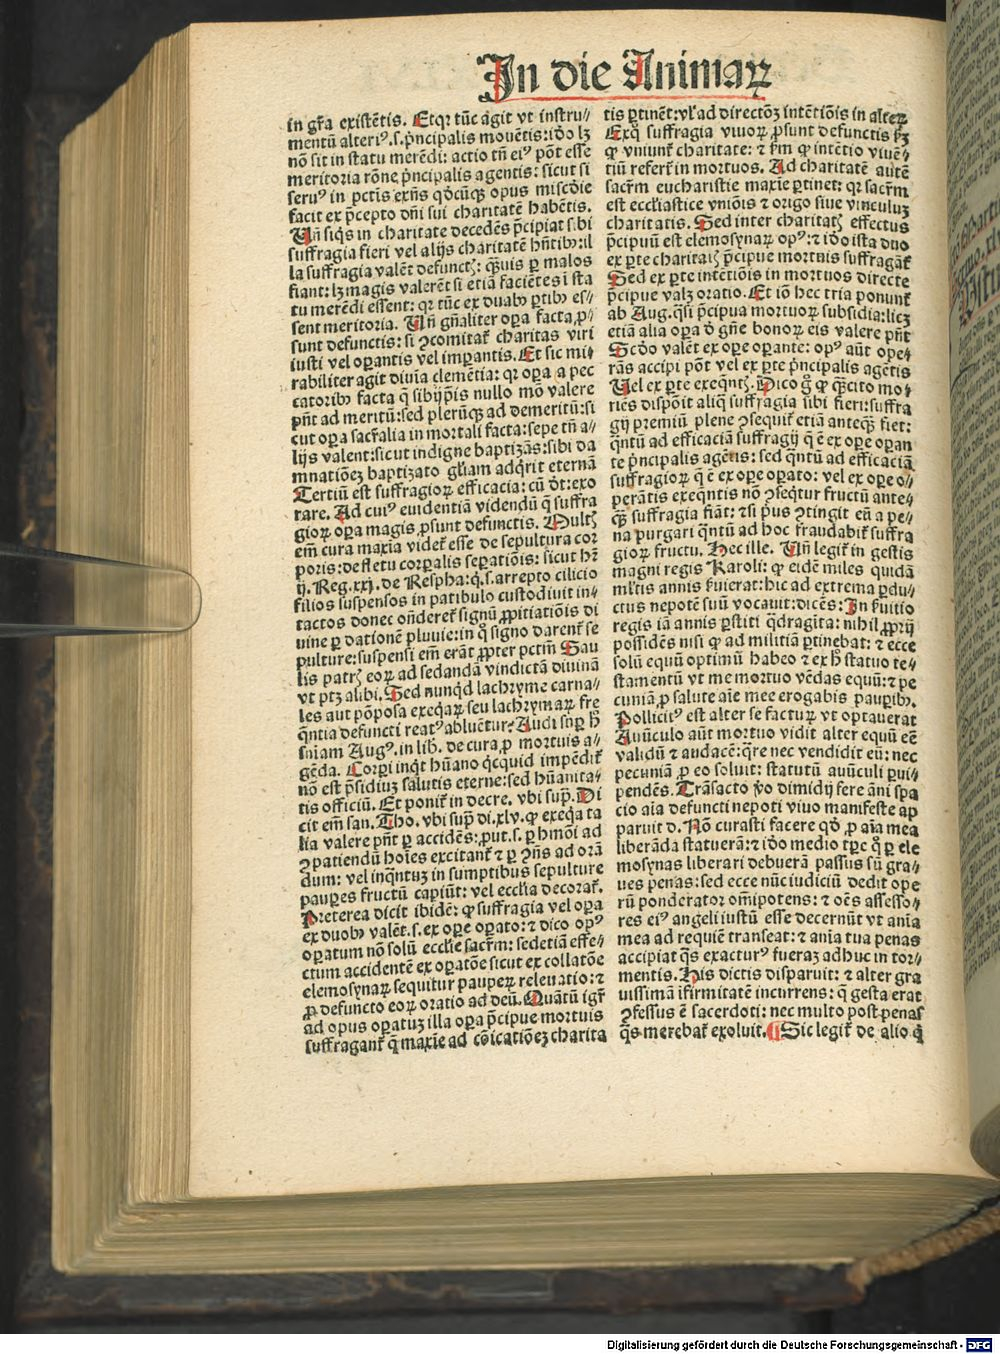 In die Animaꝝ
in gr̄a existētis. Etqꝛ tūc agit vt instru⸗
mentū alteriꝰ.s.pͥncipalis mouētis: iđo lꝫ
nō sit in statu merēdi: actio tñ eiꝰ pōt esse
meritoria rōne pͥncipalis agentis: sicut si
seruꝰ in pctīs exñs qđcūqꝫ opus miscđie
facit ex p̄cepto dñi sui charitatē habētis.
Vñ siq̇s in charitate decedēs p̄cipiat sibi
suffragia fieri vel alijs charitatē hñtibꝰ: il
la suffragia valēt defunctꝭ: qͣꝫuis ꝑ malos
fiant: lꝫ magis valerēt si etiā faciētes ī sta
tu merēdi essent: qꝛ tūc ex duabꝰ ꝑtibꝰ es⸗
sent meritoria. Vñ gñaliter oꝑa facta ꝓ⸗
sunt defunctis: si ꝯcomitat᷑ charitas viri
iusti vel oꝑantis vel imꝑantis. Et sic mi⸗
rabiliter agit diuīa clemētia: qꝛ oꝑa a pec
catoribꝰ facta q̄ sibijp̄is nullo mō valere
pñt ad meritū: sed plerūqꝫ ad demeritū: si
cut oꝑa sacr̄alia in mortali facta: sepe tñ a⸗
lijs valent: sicut indigne baptizās: sibi da
mnatiōeꝫ baptizato gl̄iam adq̇rit eternā
Tertiū est suffragioꝝ efficacia: cū đt: exo
rare. Ad cuiꝰ euidentiā videndū q̄ suffra
gioꝝ oꝑa magis ꝓsunt defunctis. Multꝭ
em̄ cura maxīa videt᷑ esse de sepultura cor
poris: de fletu corꝑalis seꝑatiōis: sicut hꝛ̄
ij. Reg. xxj. de Respha: q̄.s. arrepto cilicio
filios suspensos in patibulo custodiuit in⸗
tactos donec oñderet᷑ signū ꝓpitiatiōis di
uine ꝑ dationē pluuie: in qͦ signo darent᷑ se
pulture: suspensi em̄ erāt ꝓpter pctm̄ Sau
lis patrꝭ eoꝝ ad sedandā vindictā diuinā
vt ptꝫ alibi. Sed nunqͥd lachryme carna⸗
les aut pōposa exeqͥaꝝ seu lachrymaꝝ fre
qͤntia defuncti reatꝰ abluētur? Audi suꝑ hͦ
sniam Augꝰ. in lib̄. de cura ꝓ mortuis a⸗
gēda. Corpi inqͥt hūano qͥcquid impēdit᷑
nō est p̄sidiuꝫ salutis eterne: sed hūanita⸗
tis officiū. Et ponit᷑ in decre. vbi supͣ. Di
cit em̄ san. Tho. vbi supͣ di. xlv. ꝙ exeqͥa ta
lia valere pñt ꝑ accidēs: ꝓut.s. ꝑ hmōi ad
ꝯpatiendū hoīes excitant᷑ ⁊ ꝑ ꝯñs ad orā
dum: vel inqͣntuꝫ in sumptibus sepulture
pauꝑes fructū capiūt: vel eccl̄ia decorat᷑.
Preterea dicit ibidē: ꝙ suffragia vel oꝑa
ex duobꝰ valēt.s. ex oꝑe oꝑato: ⁊ dico opꝰ
oꝑatum nō solū eccl̄ie sacr̄m: sed etiā effe⸗
ctum accidentē ex oꝑatōe sicut ex collatōe
elemosynaꝝ sequitur pauꝑeꝝ releuatio: ⁊
ꝓ defuncto eoꝝ oratio ad deū. Quātū igr̄
ad opus oꝑatuꝫ illa oꝑa p̄cipue mortuis
suffragant᷑ q̄ maxīe ad cōicatiōeꝫ charita
tis ꝑtinēt: vl̓ ad directōꝫ intētiōis in alteꝝ
Exq̄ suffragia viuoꝝ ꝓsunt defunctis ẜꝫ
ꝙ vniunt᷑ charitate: ⁊ ẜm ꝙ intētio viuē⸗
tiū refert᷑ in mortuos. Ad charitatē autē
sacr̄m eucharistie maxīe ꝑtinet: qꝛ sacr̄m
est eccl̄iastice vniōis ⁊ origo siue vinculuꝫ
charitatis. Sed inter charitatꝭ effectus
p̄cipuū est elemosynaꝝ opꝰ: ⁊ iđo ista duo
ex ꝑte charitatꝭ p̄cipue mortuis suffragāt᷑
Sed ex ꝑte intētiōis in mortuos directe
p̄cipue valꝫ oratio. Et iō hec tria ponunt᷑
ab Aug. qͣsi p̄cipua mortuoꝝ subsidia: licꝫ
etiā alia oꝑa đ gñe bonoꝝ eis valere pñt
Scđo valēt ex oꝑe oꝑante: opꝰ aūt oꝑe⸗
rās accipi pōt vel ex ꝑte pͥncipalis agētis
Vel ex ꝑte exeqͤntꝭ. Dico gͦ ꝙ qͣꝫcito mo⸗
riēs dispōit aliq̄ suffragia sibi fieri: suffra
gij premiū plene ꝯsequit᷑ etiā anteqͣꝫ fiet:
qͣntū ad efficaciā suffragij q̄ ē ex oꝑe oꝑan
te pͥncipalis agētis: sed qͣntū ad efficaciā
suffragioꝝ q̄ ē ex oꝑe oꝑato: vel ex oꝑe o⸗
ꝑerātis exeqͤntis nō ꝯseqͥtur fructū ante⸗
qͣꝫ suffragia fiāt: ⁊ si pͥus ꝯtingit eū a pe⸗
na purgari qͣntū ad hoc fraudabit᷑ suffra
gioꝝ fructu. Hec ille. Vñ legit᷑ in gestis
magni regis Karoli: ꝙ eidē miles quidā
ml̓tis annis ẜuierat: hic ad extrema ꝑdu⸗
ctus nepotē suū vocauit: dicēs: In ẜuitio
regis iā annis ꝑstiti qͣdragīta: nihil ꝓprij
possidēs nisi ꝙ ad militiā ꝑtinebat: ⁊ ecce
solū equū optimū habeo ⁊ ex hͦ statuo te⸗
stamentū vt me mortuo vēdas equū: ⁊ pe
cuniā ꝓ salute aīe mee erogabis pauꝑibꝰ.
Pollicitꝰ est alter se facturꝝ vt optauerat
Auūculo aūt mortuo vidit alter equū eē
validū ⁊ audacē: qͣre nec vendidit eū: nec
pecuniā ꝓ eo soluit: statutū auūculi ꝑui⸗
pendēs. Trāsacto ꝟo dimidij fere āni spa
cio aīa defuncti nepoti viuo manifeste ap
paruit d. Nō curasti facere qđ ꝓ aīa mea
liberāda statuerā: ⁊ iđo medio tꝑe qͦ ꝑ ele
mosynas liberari debuerā passus sū gra⸗
ues penas: sed ecce nūc iudiciū dedit oꝑe
rū ponderator om̄ipotens: ⁊ oēs assesso⸗
res eiꝰ angeli iustū esse decernūt vt anīa
mea ad requiē transeat: ⁊ anīa tua penas
accipiat q̄s exacturꝰ fueraꝫ adhuc in tor⸗
mentis. His dictis disparuit: ⁊ alter gra
uissimā īfirmitatē incurrens: q̄ gesta erāt
ꝯfessus ē sacerdoti: nec multo post penas
q̄s merebat᷑ exoluit. ¶ Sic legit᷑ de alio qͥ
Digitalisierung gefördert durch die Deutsche Forschungsgemeinschaft - DFG